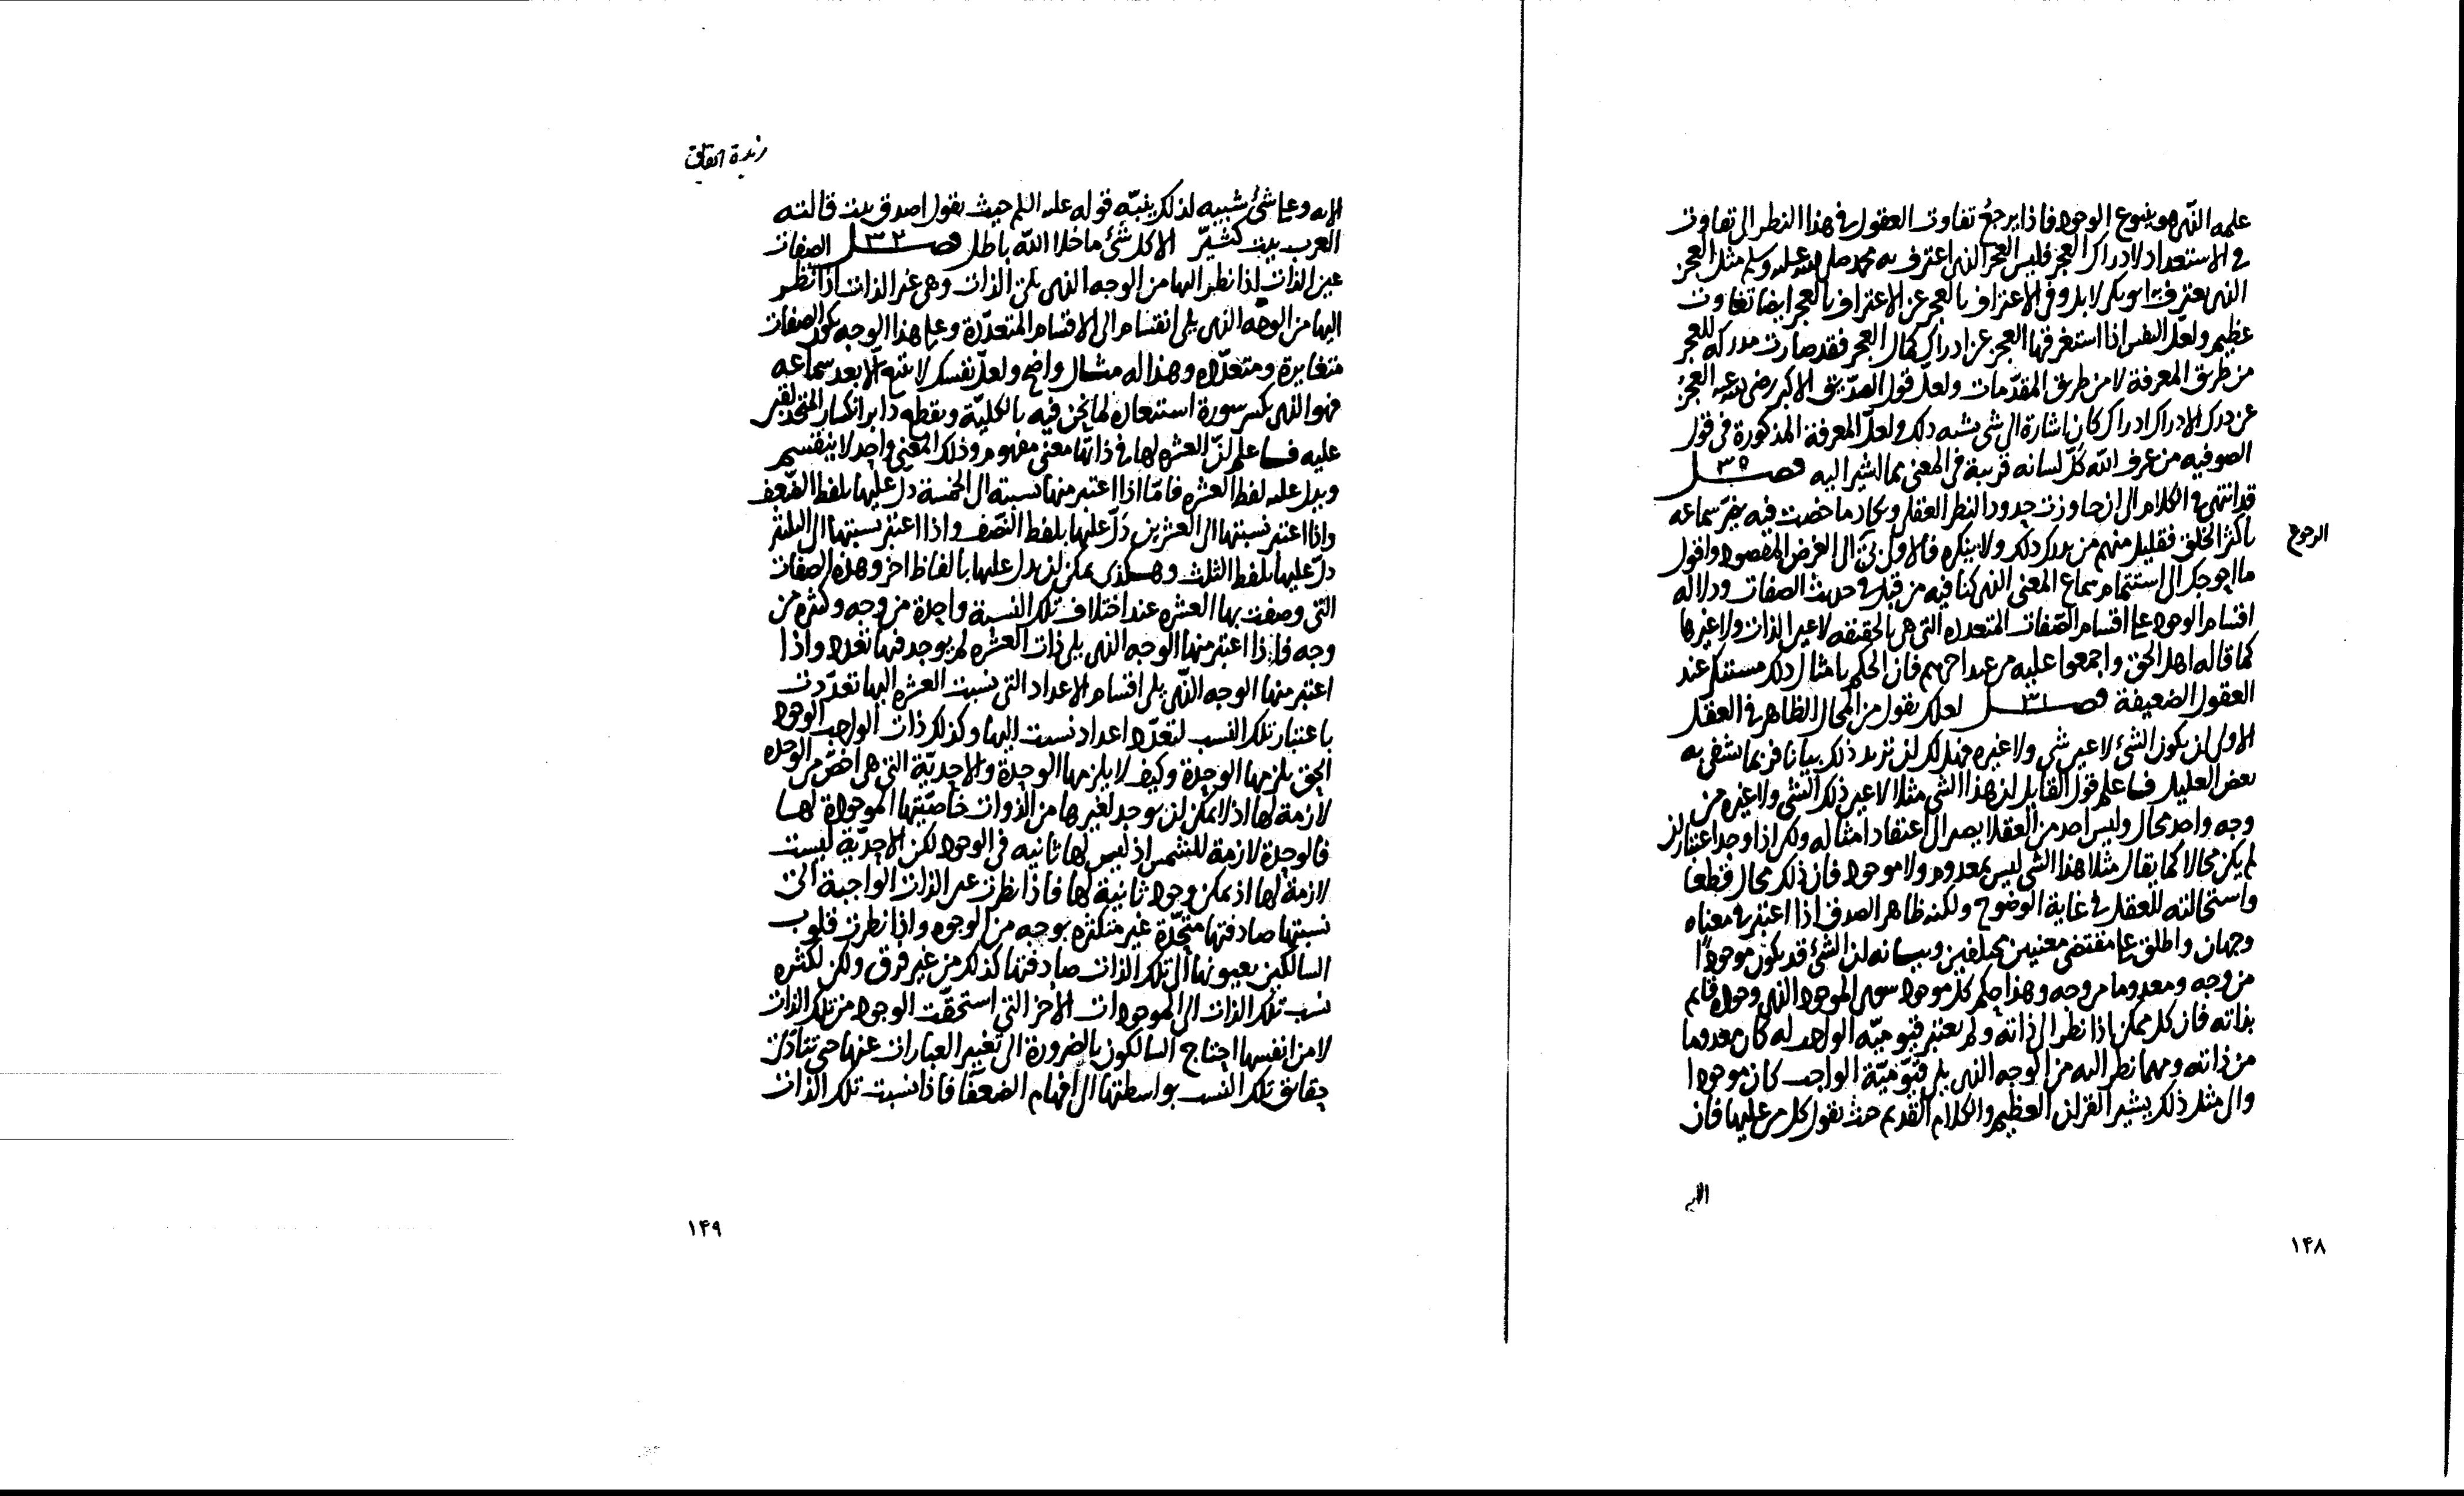 علمه الذى هو ينبوع الوجود فاذا يرجع تفاوت العقول فى هذا النظر الى تفاوت
فى الاستعداد لادراك العجز فليس العجز الذى اعترف به محمد صلى الله عليه وسلم مثل العجز
الذى يعترف به ابو بكر لا بل وفى الاعتراف بالعجز عن الاعتراف بالعجز ايضا تفاوت
عظيم ولعل النفس اذا استغرقها العجز عن ادراك كمال العجز فقد صارت مدركه للعجز
من طريق المعرفة لا من طريق المقدّمات ولعلّ قول الصدّيق الاكبر رضى الله عنه العجز
عن درك الادراك ادراك كان اشارة الى شى يشبه ذلك ولعلّ المعرفة المذكورة فى قول
الصوفيه من عرف الله كلّ لسانه قريبة فى المعنى مما اشير اليه فصل ٣٠
قد انتهى فى الكلام الى ان جاوزت حدود النظر العقلى وكاد ما خضت فيه يضرّ سماعه
باكثر الخلق فقليل منهم من يدرك ذلك ولا ينكره فالاولى بى الى الغرض المقصود واقول
الرجوع
ما احوجك الى استتمام سماع المعنى الذى كنا فيه من قبل فى حديث الصفات ودلاله
اقسام الوجود على اقسام الصّفات المتعدده التى هى بالحقيقه لا عين الذات ولا غيرها
كما قاله اهل الحق واجمعوا عليه من عند اخرهم فان الحكم بامثال ذلك مستنكر عند
العقول الضعيفة فصل ٣١ لعلك تقول من المحال الظاهر فى العقل
الاول ان يكون الشئ لا عين شى ولا غيره فهل لك ان تزيد ذلك بيانا فربما يشفى به
بعض العليل فاعلم قول القايل ان هذا الشى مثلا لا عين ذلك الشئ ولا غيره من
وجه واحد محال وليس احد من العقلا يصير الى اعتقاد امثاله ولكن اذا وجد اعتباران
لم يكن محالا كما يقال مثلا هذا الشى ليس بمعدوم ولا موجود فان ذلك محال قطعا
واستحالته للعقل فى غاية الوضوح ولكنه ظاهر الصدق اذا اعتبر فى معناه
وجهان واطلق على مقتضى معنيين مختلفين وبيانه ان الشئ قد يكون موجودًا
من وجه ومعدوما من وجه وهذا حكم كل موجود سوى الموجود الذى وجوده قايم
بذاته فان كل ممكن اذا نظر الى ذاته ولم يعتبر قيوميّه الواجب له كان معدوما
من ذاته ومهما نظر اليه من الوجه الذى يلى قيّوميّة الواجب كان موجودا
والى مثل ذلك يشير القران العظيم والكلام القديم حيث يقول كل من عليها فان
الايه
١٤٨
زبدة الحقايق
الايه وعلى شئ شبيه لذلك ينبّه قوله عليه السلم حيث يقول اصدق بيت قالته
العرب بيت الا كل شئ ما خلا الله باطل فصل ٣٢ الصفات
عين الذات اذا نظر اليها من الوجه الذى يلى الذات وهى غير الذات اذا نظر
اليها من الوجه الذى يلى انقسام الى الاقسام المتعدّدة وعلى هذا الوجه يكون الصفات
متغايرة ومتعدّده وهذا له مثال واضح ولعلّ نفسك لا تقنع الّا بعد سماعه
فهو الذى يكسر سورة استبعاده لما نحن فيه بالكليّة ويقطع دابر انكسار
عليه فاعلم انّ العشره لها فى ذاتها معنى مفهوم وذلك المعنى واحد لا ينقسم
ويدل عليه لفظ العشره فامّا اذا اعتبر منها نسبته الى الخمسة دلّ عليها بلفظ الضّعف
واذا اعتبر نسبتها الى العشرين دلّ عليها بلفظ النّصف واذا اعتبر نسبتها الى الثلثين
دلّ عليها بلفظ الثلث وهكذى يمكن ان يدل عليها بالفاظ اخر وهذه الصفات
التى وصفت بها العشره عند اختلاف تلك النسبة واحدة من وجه وكثره من
وجه فاذا اعتبر منها الوجه الذى يلى ذات العشره لم يوجد فيها تعدد واذا
اعتبر منها الوجه الذّى يلى اقسام الاعداد التى نسبت العشره اليها تعدّدت
باعتبار تلك النسب لتعدّد اعداد نسبت اليها وكذلك ذات الواجب الوجود
الحق يلزمها الوحدة وكيف لا يلزمها الوحدة والاحديّة التى هى اخصّ من الوحده
لازمة لها اذ لا يمكن ان يوجد لغيرها من الذوات خاصّيتها الموجودة لها
فالوحدة لازمة للشمس اذ ليس لها ثانيه فى الوجود لكن الاحديّة ليست
لازمة لها اذ يمكن وجود ثانية لها فاذا نظرت عين الذات الواجبة الى
نسبتها صادفتها متّحدّة غير متكثره بوجه من الوجوه واذا نظرت قلوب
السالكين بعيونها الى تلك الذات صادفتها كذلك من غير فرق ولكن لكثره
نسب تلك الذات الى الموجودات الاخر التى استحقّت الوجود من تلك الذات
لا من انفسها احتاج السالكون بالضرورة الى تغيير العبارات عنها حتى تتادّى
حقايق تلك النسب بواسطتها الى افهام الضعفا فاذا نسبت تلك الذات
١٤٩